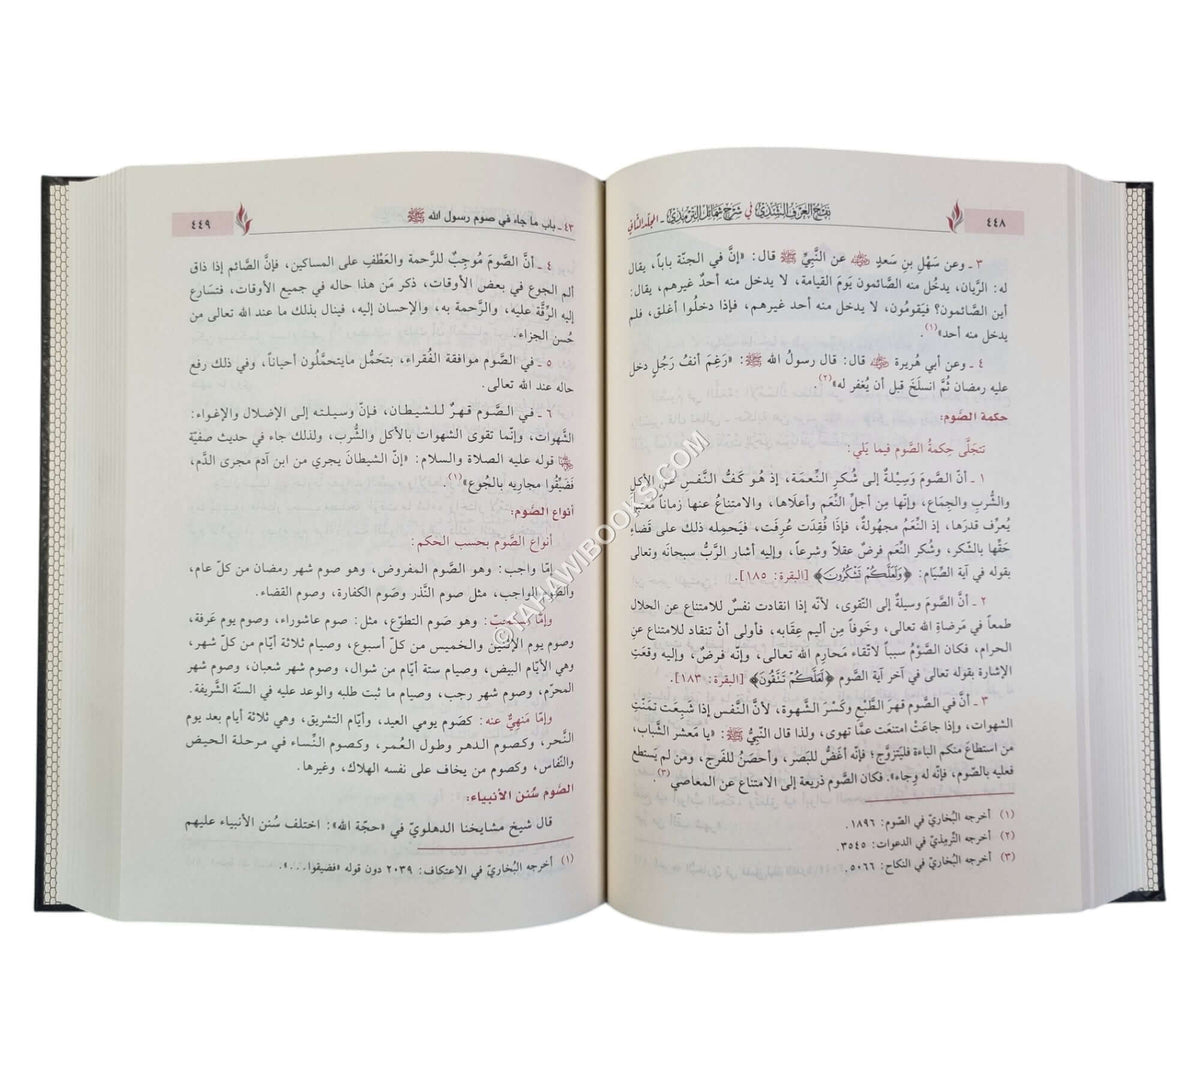 ٤٤٨
نفح العرف الشذي في شرح شمائل الترمذي ـ المجلد الثاني
٣ ـ وعن سَهْلِ بنِ سَعدٍ ﵁ عن النَّبيِّ ﷺ قال: «إنَّ في الجنّة باباً، يقال
له: الرَّيان، يدخُل منه الصَّائمون يَومَ القيامة، لا يدخل منه أحدٌ غيرهم، يقال:
أين الصَّائمون؟ فيَقومُون، لا يدخل منه أحد غيرهم، فإذا دخلُوا أغلق، فلم
يدخل منه أحد»(١)
٤ ـ وعن أبي هُريرة ﵁ قال: قال رسولُ الله ﷺ: «رَغِمَ أنفُ رَجُلٍ دخل
عليه رمضان ثُمَّ انسلَخَ قبل أن يُغفر له»(٢)
حكمة الصَّوم:
تتجَلَّى حِكمةُ الصَّوم فيما يَلي:
١ ـ أنّ الصَّومَ وَسِيْلةٌ إلى شُكرِ النِّعمَة، إذ هُو كَفُّ النَّفس عن الأكلِ
والشُّربِ والجِمَاع، وإنّها مِن أجلِّ النِّعَم وأعلَاها، والامتناعُ عنها زماناً مُعيَّناً
يُعرِّف قدرَها، إذ النِّعَمُ مجهولةٌ، فإذا فُقِدَت عُرِفَت، فيَحمِله ذلك على قَضاءِ
حَقِّها بالشّكر، وشُكر النِّعَم فرضٌ عقلاً وشرعاً، وإليه أشار الرَّبُّ سبحانَه وتعالى
بقوله في آية الصِّيَام: ﴿وَلَعَلَّكُمْ تَشْكُرُونَ﴾ [البقرة: ١٨٥].
٢ ـ أنَّ الصَّومَ وسيلةٌ إلى التّقوى، لأنّه إذا انقادت نفسٌ للامتناع عن الحلال
طمعاً في مَرضاةِ الله تعالى، وخَوفاً مِن أليمِ عِقابِه، فأولى أنْ تنقاد للامتناع عن
الحرام، فكان الصَّوْمُ سبباً لاتّقاء مَحارِمِ الله تعالى، وإنّه فرضٌ، وإليه وقعَتِ
الإشارة بقوله تعالى في آخر آية الصَّوم ﴿لَعَلَّكُمْ تَتَّقُونَ﴾ [البقرة: ١٨٣].
٣ ـ أنَّ في الصَّوم قهرَ الطَّبْعِ وكَسْرَ الشَّهوة، لأنَّ النَّفس إذا شَبِعَت تمنّتِ
الشهوات، وإذا جاعَتْ امتنعَت عمَّا تهوى، ولذا قال النّبيُّ ﷺ: «يا مَعشر الشَّباب،
من استطاعَ منكم الباءة فليَتزوَّج؛ فإنّه أغَضُّ للبَصَر، وأحصَنُ للفَرج، ومن لم يَستطع
فعليه بالصّوم، فإنّه له وِجاء». فكان الصَّوم ذريعة إلى الامتناع عن المعاصي(٣).
(١) أخرجه البُخاريّ في الصّوم: ١٨٩٦.
(٢) أخرجه التّرمِذيّ في الدعوات: ٣٥٤٥.
(٣) أخرجه البُخاريّ في النكاح: ٥٠٦٦.
٤٣ ـ باب ما جاء في صوم رسول الله ﷺ
٤٤٩
٤ ـ أنَّ الصَّومَ مُوجِبٌ للرَّحمة والعَطْفِ على المساكين، فإنَّ الصَّائم إذا ذاق
ألم الجوع في بعض الأوقات، ذكر مَن هذا حاله في جميع الأوقات، فتسَارع
إليه الرِّقَّة عليه، والرَّحمة به، والإحسان إليه، فينال بذلك ما عند الله تعالى من
حُسن الجزاء.
٥ ـ في الصَّوم موافقة الفُقراء، بتحَمُّل مايتحمَّلُون أحياناً، وفي ذلك رفع
حاله عند الله تعالى.
٦ ـ في الصَّوم قهرٌ للشيطان، فإنّ وسيلته إلى الإضلال والإغواء:
الشَّهوات، وإنّما تقوى الشهوات بالأكل والشُّرب، ولذلك جاء في حديث صفيّة
﵂ قوله عليه الصلاة والسلام: «إنّ الشيطانَ يجري من ابن آدم مجرى الدَّم،
فَضَيِّقُوا مجاريه بالجُوع»(١).
أنواع الصَّوم:
أنواعَ الصَّوم بحسب الحكم:
إمّا واجب: وهو الصَّوم المفروض، وهو صوم شهر رمضان من كلّ عام،
والصَّوم الواجب، مثل صوم النَّذر وصَوم الكفارة، وصوم القضاء.
وإمّا مستحبّ: وهو صَوم التطوّع، مثل: صوم عاشوراء، وصوم يوم عَرفة،
وصوم يوم الإثنين والخميس من كلّ أسبوع، وصيام ثلاثة أيّام من كلّ شهر،
وهي الأيّام البيض، وصيام ستة أيّام من شوال، وصوم شهر شعبان، وصوم شهر
المحرّم، وصوم شهر رجب، وصيام ما ثبت طلبه والوعد عليه في السنّة الشّريفة.
وإمّا مَنهِيٌّ عنه: كصَوم يومي العيد، وأيّام التشريق، وهي ثلاثة أيام بعد يوم
النَّحر، وكصوم الدهر وطول العُمر، وكصوم النِّساء في مرحلة الحيض
والنّفاس، وكصوم من يخاف على نفسه الهلاك، وغيرها.
الصّوم سُنن الأنبياء:
قال شيخ مشايخنا الدهلويّ في «حجّة الله»: اختلف سُنن الأنبياء عليهم
(١) أخرجه البُخاريّ في الاعتكاف: ٢٠٣٩ دون قوله «فضيقوا...».
©TAHAWIBOOKS.COM